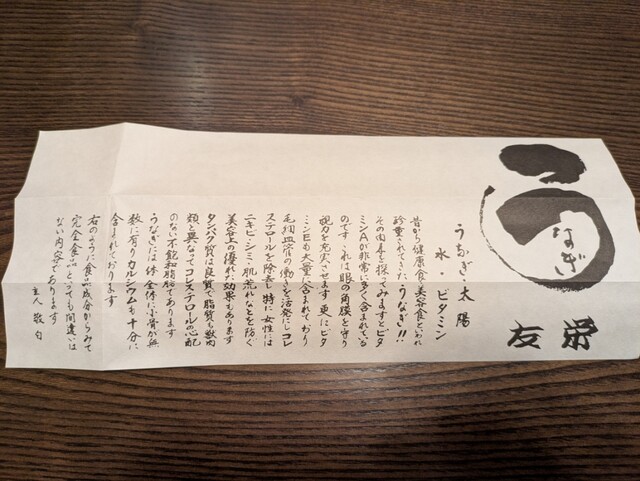 うなぎ
友栄
うなぎ・太陽
水・ビタミン
昔から健康食・美容食といわれ
珍重されてきたうなぎ!!
その内容を探ってみますとビタ
ミンAが非常に多く含まれている
のです これは眼の角膜を守り
視力を充実させます 更にビタ
ミンEも大量に含まれており
毛細血管の働きを活発にしコレ
ステロールを除去し特に女性には
ニキビ・シミ・肌荒れなどを防ぐ
美容上の優れた効果もあります
タンパク質は良質で脂質も獣肉
類と異なってコレステロールの心配
のない不飽和脂肪であります
うなぎには体全体に小骨が無
数に有りカルシウムも十分に
含まれております
右のように食品成分からみて
完全食品といっても間違いは
ない内容であります
主人 敬白